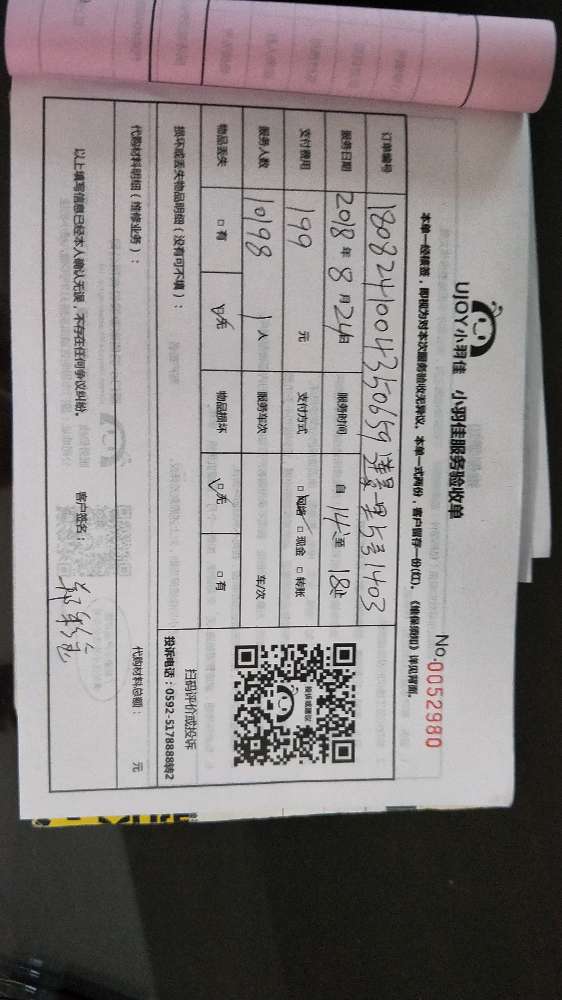 UJOY小羽佳 小羽佳服务验收单
No.0052980
本单一经核签，即视为对本次服务验收无异议。本单一式两份，客户留存一份(红)。《维保须知》详见背面。
订单编号 180824100435065 9 莲景一里5号1403
服务日期 2018年8月24日 服务时间 自14点至18止
支付费用 199 元 支付方式 □网络 □现金 □转账
服务人数 10198 1人 服务车次 车/次
物品丢失 □有 □无 物品损坏 □无 □有
投诉或建议
扫码评价或投诉
投诉电话：0592-5178888转2
损坏或丢失物品明细（没有可不填）：
代购材料明细（维修业务）： 代购材料总额： 元
以上填写信息已经本人确认无误，不存在任何争议纠纷。 客户签名：